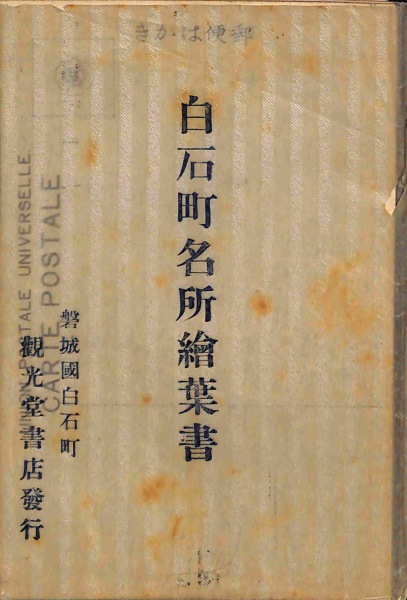 きかは便郵
白石町名所繪葉書
磐城國白石町
觀光堂書店發行
UNION POSTALE UNIVERSELLE
CARTE POSTALE